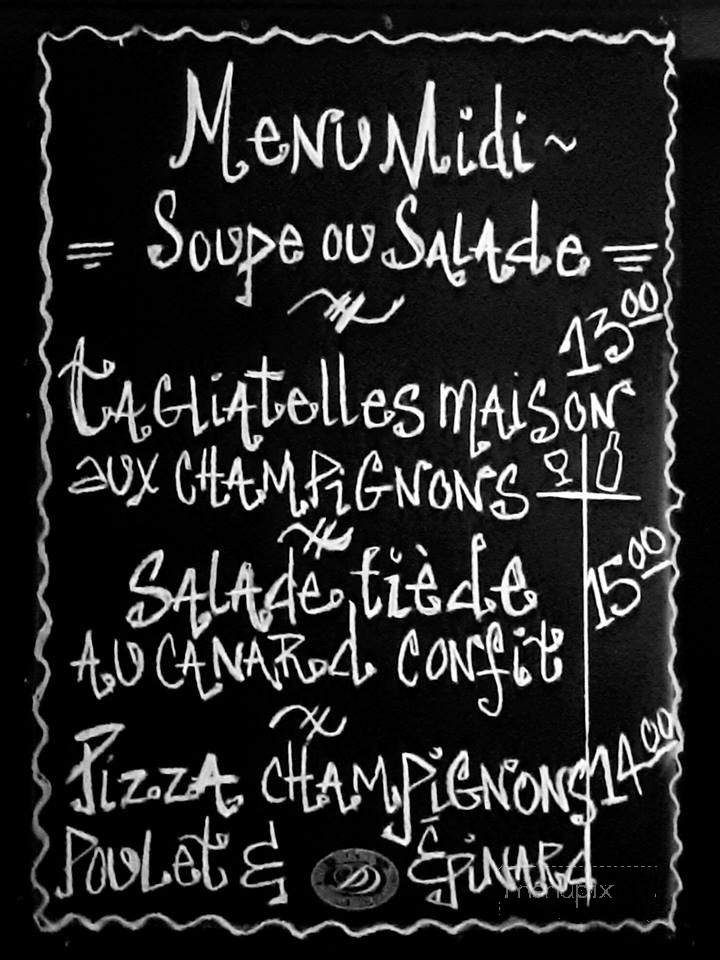 Menu Midi ~
= Soupe ou Salade =
13.00
Tagliatelles maison
aux champignons
Salade tiède
15.00
au canard confit
Pizza champignons 14.00
Poulet & Épinard
menupix